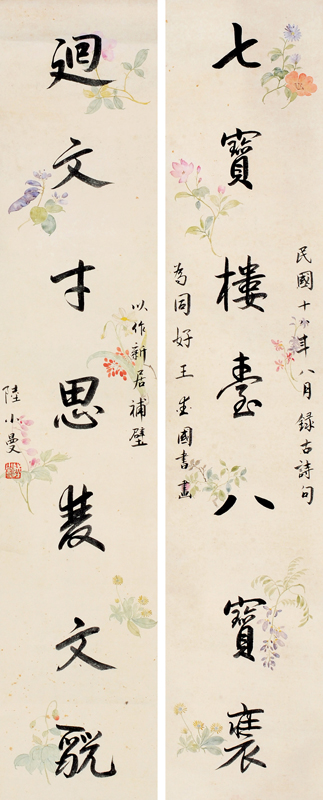 七寶樓臺八寶裝
民國十年八月錄古詩句
為同好王國書畫
廻文才思雙文貌
以作新居補壁
陸小曼